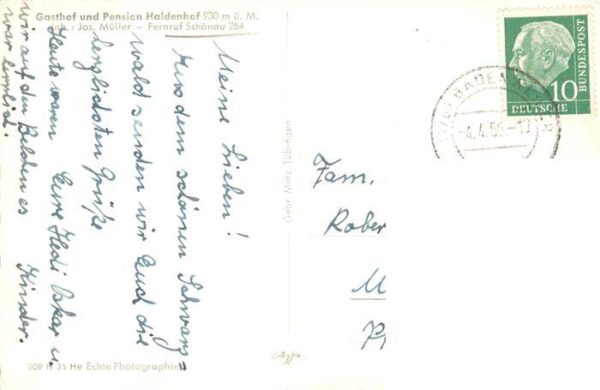 Gasthof und Pension Haldenhof 930 m ü. M.
Inh.: Jos. Müller – Fernruf Schönau 284
Meine Lieben!
Aus dem schönen Schwarz=
wald senden wir Euch die
herzlichsten Grüße
Eure Hedi Oskar u.
Kinder.
Heute waren
wir auf den Belchen es
war herrlich!
Gebr. Metz, Tübingen
209 H 35 He Echte Photographie
DEUTSCHE
BUNDESPOST
10
BADEN
-4.4.5
Fam.
Rober
M